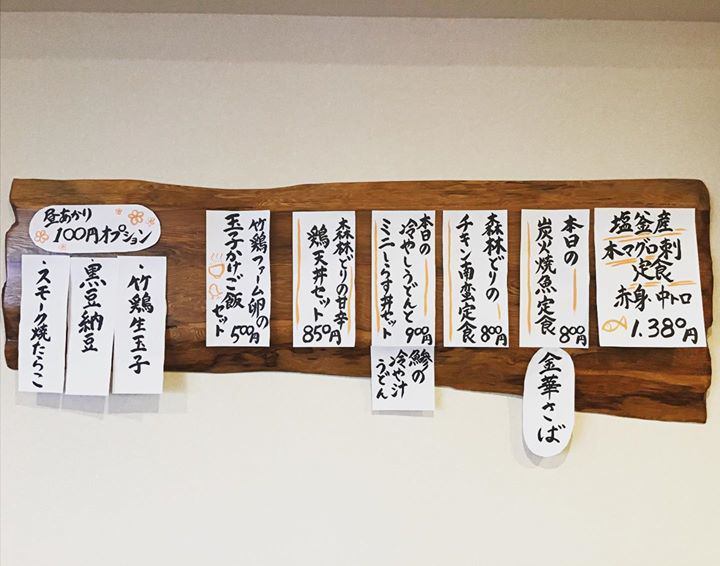 塩釜産
本マグロ刺
定食
赤身・中トロ
1.380円
本日の
炭火焼魚定食
800円
金華さば
森林どりの
チキン南蛮定食
800円
本日の
冷やしうどんと
ミニしらす丼セット
900円
鰺の
冷や汁
うどん
森林どりの甘辛
鶏天丼セット
850円
竹鶏ファーム卵の
玉子かけご飯
セット
500円
昼あかり
100円オプション
・竹鶏生玉子
・黒豆納豆
・スモーク焼たらこ